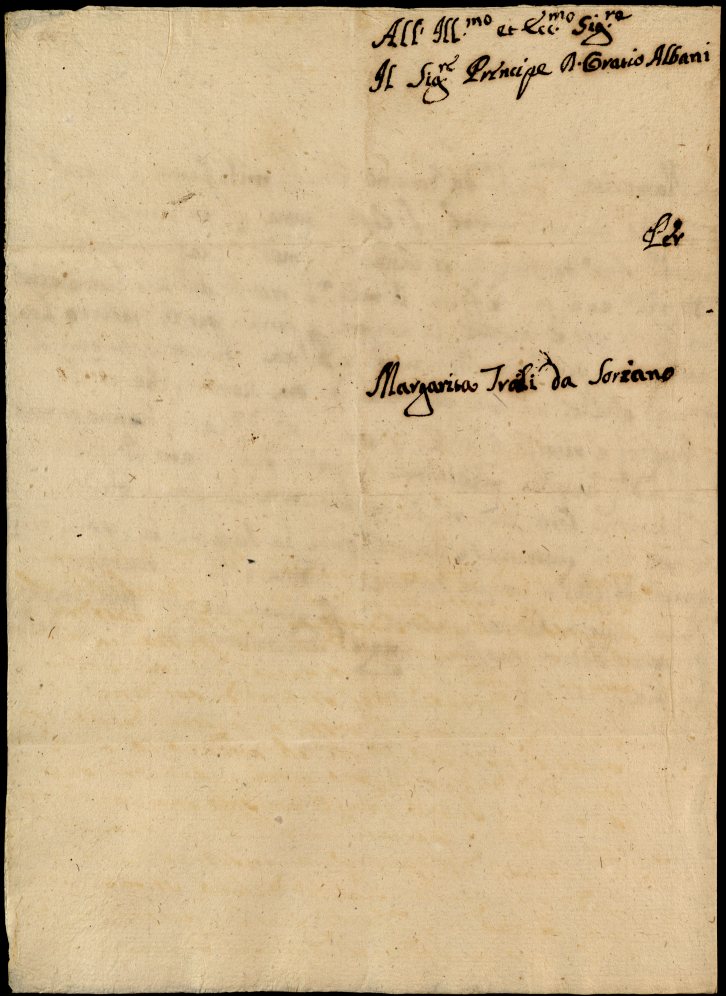 All' Ill.mo et Ecc.mo Sig.re
Il Sig.re Principe D. Oratio Albani
Per
Margarita Trali da Soriano